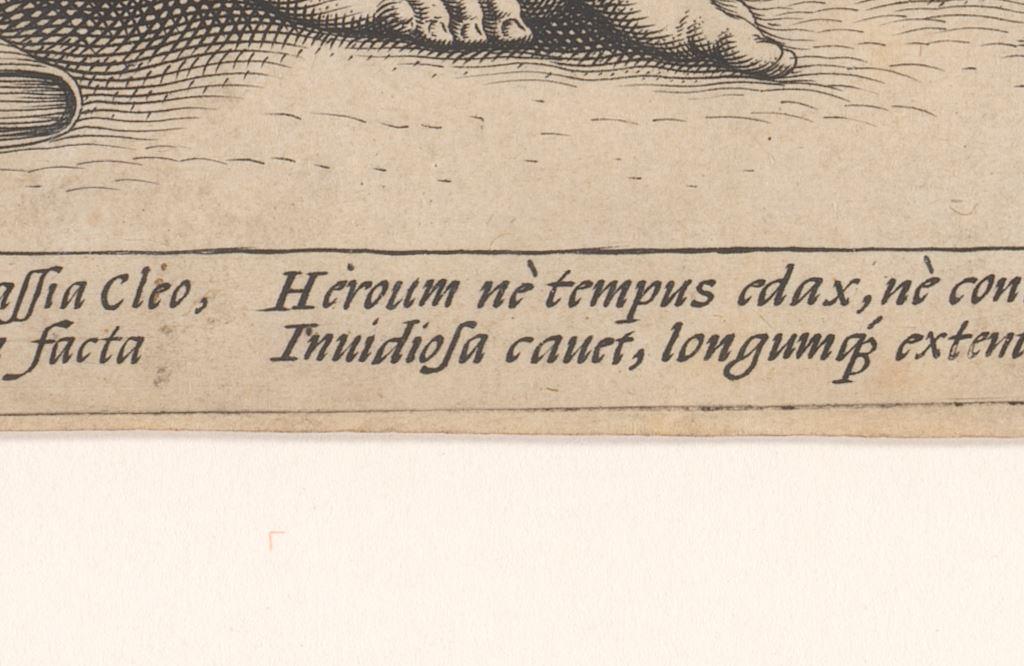 aſſia Cleo, Heroum nè tempus edax, nè con
facta Inuidioſa cauet, longumq́ꝫ extent